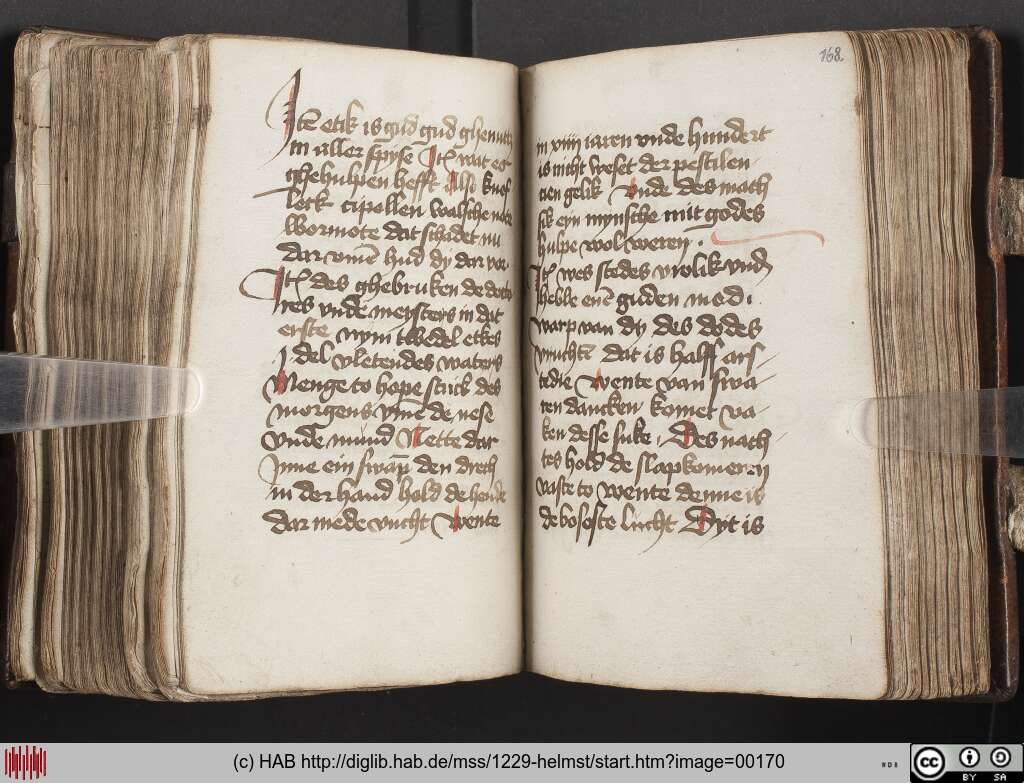 Ite etik is gud gud ghenutt
in aller spise Ite wat eg
ghehulpen hefft Also knef
lock cipollen walsche note
Wormote dat schadet nu
dar vme hud dy dar vor
Ite des ghebruken de docto
res vnde meysters in dat
erste nym twedel etkes
1 del vletendes waters
Menge to hope stuck des
morgens vme de nese
vnde mund Nette dar
Inne ein swap den drech
in der hand hold de hende
dar mede vucht Wente
168
in xiiij iaren vnde hundert
is nicht weset der pestilen
cien gelik Vnde des mach
sik eyn mynsche mit godes
hulpe wol weren .
Ite wes stedes vrolik vnd
hebbe ene guden mod .
warp van dy des dodes
vruchte dat is halff ars-
tedie Wente van swa-
ren dancken komet va-
ken desse suke . Des nach
tes hold de slapkomeren
vaste to wente denne is
de boseste lucht Dyt is
(c) HAB http://diglib.hab.de/mss/1229-helmst/start.htm?image=00170
WDB
cc BY SA